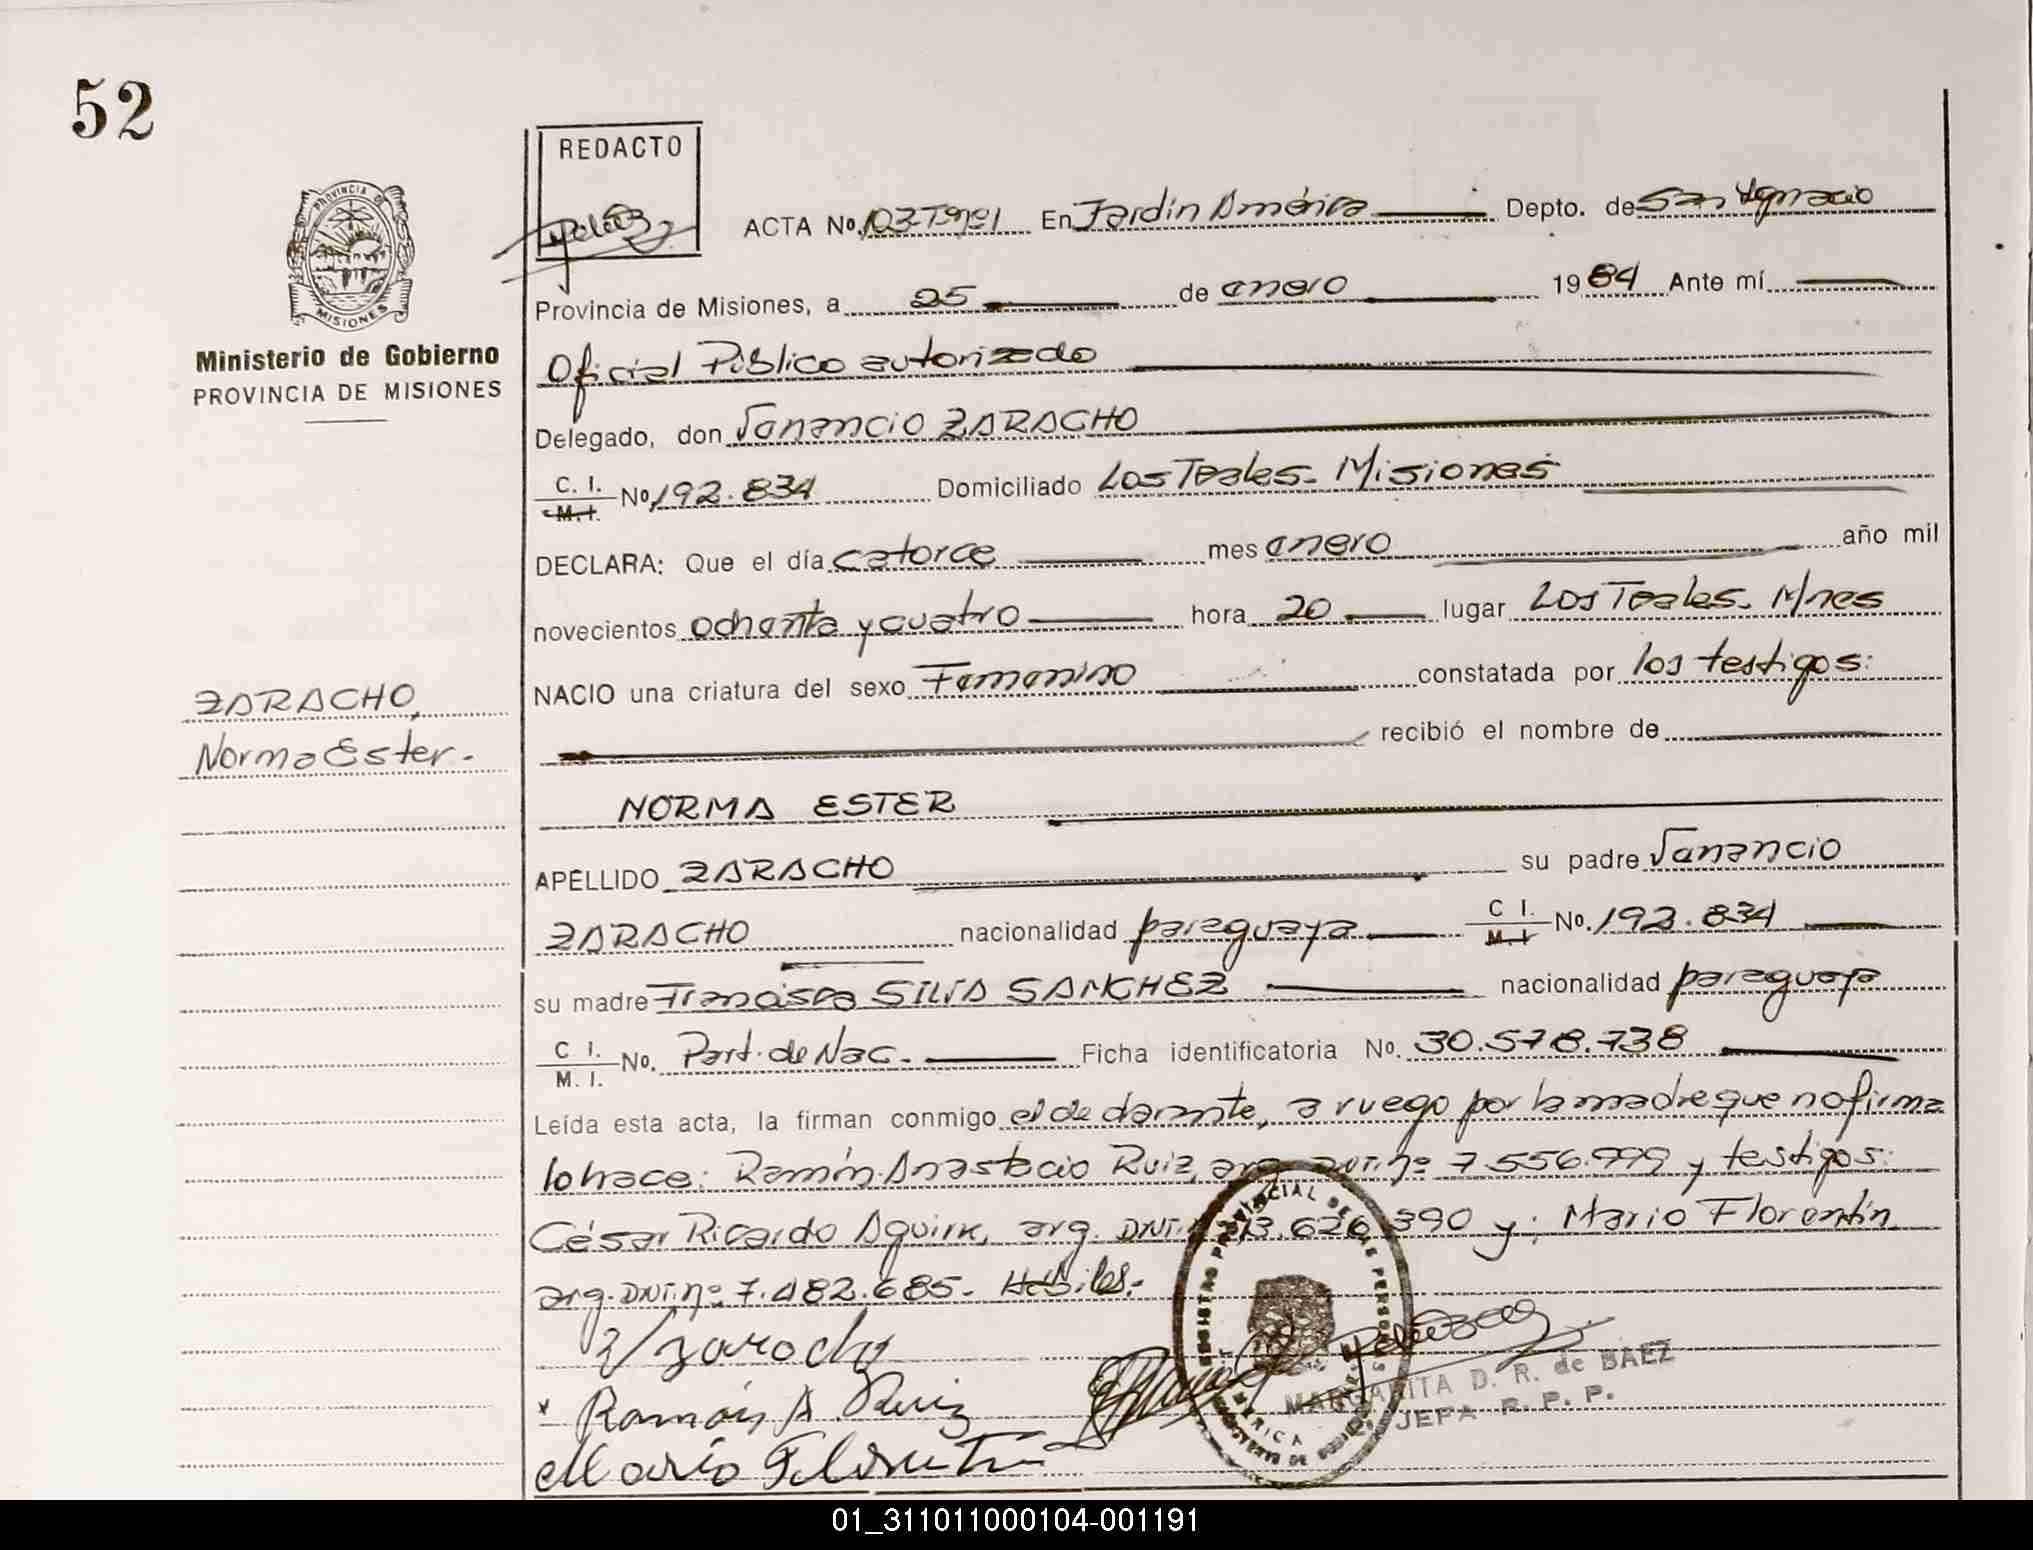 52
REDACTO
PROVINCIA DE
MISIONES
Ministerio de Gobierno
PROVINCIA DE MISIONES
ACTA No. 103-Tº 1 En Jardín América Depto. de San Ignacio
Provincia de Misiones, a 25 de enero 1984 Ante mí
Oficial Público autorizado
Delegado, don Venancio ZARACHO
C. I. M. I. No 192.834 Domiciliado Los Teales- Misiones
DECLARA: Que el día catorce mes enero año mil
novecientos ochenta y cuatro hora 20 lugar Los Teales- Mnes
NACIO una criatura del sexo Femenino constatada por los testigos:
recibió el nombre de
ZARACHO,
Norma Ester.-
NORMA ESTER
APELLIDO ZARACHO su padre Venancio
ZARACHO nacionalidad paraguaya C I. M. I No. 192.834
su madre Francisca SILVA SANCHEZ nacionalidad paraguaya
C I. M. I. No. Part. de Nac.- Ficha identificatoria No. 30.578.738
Leída esta acta, la firman conmigo el declarante, a ruego por la madre que no firma
lo hace: Ramón Anastacio Ruiz, arg. DNI. nº 7.556.999 y testigos:
César Ricardo Aguirre, arg. DNI. 13.626.390 y: Mario Florentín
arg. DNI. nº 7.482.685.- Hábiles.-
V Zaracho
Ramón A. Ruiz
Mario Florentín
MARGARITA D. R. de BAEZ
JEFA R. P. P.
01_311011000104-001191